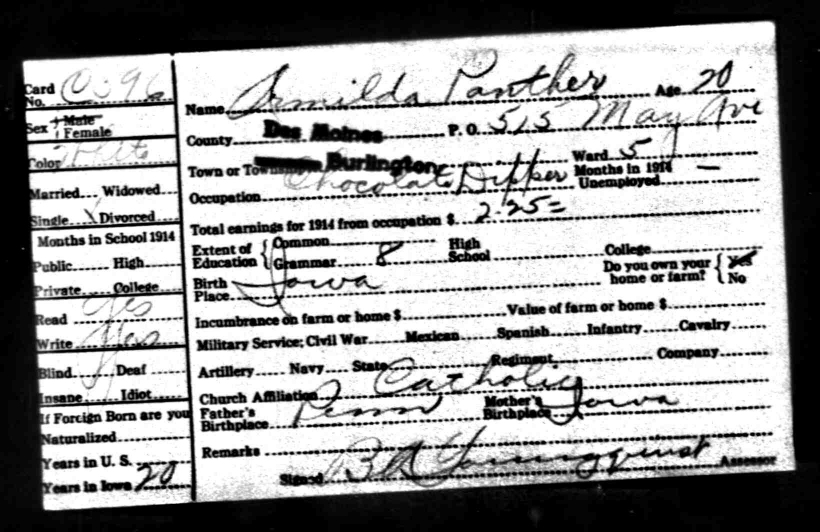 Card No. C596
Sex Male Female
Color White
Married.... Widowed....
Single X Divorced....
Months in School 1914
Public....... High.......
Private..... College.......
Read Yes
Write Yes
Blind....... Deaf.......
Insane...... Idiot.......
If Foreign Born are you
Naturalized
Years in U. S.
Years in Iowa 20
Name Armilda Panther Age 20
County Des Moines P. O. 515 May Ave
Town or Township Burlington Ward 5
Occupation Chocolate Dipper Months in 1914 Unemployed —
Total earnings for 1914 from occupation $ 225=
Extent of Education { Common Grammar 8 High School College
Birth Place Iowa Do you own your home or farm? { Yes No
Incumbrance on farm or home $ Value of farm or home $
Military Service; Civil War Mexican Spanish Infantry Cavalry
Artillery Navy State Regiment Company
Church Affiliation Catholic
Father's Birthplace Penn Mother's Birthplace Iowa
Remarks
Signed Youngquist Assessor